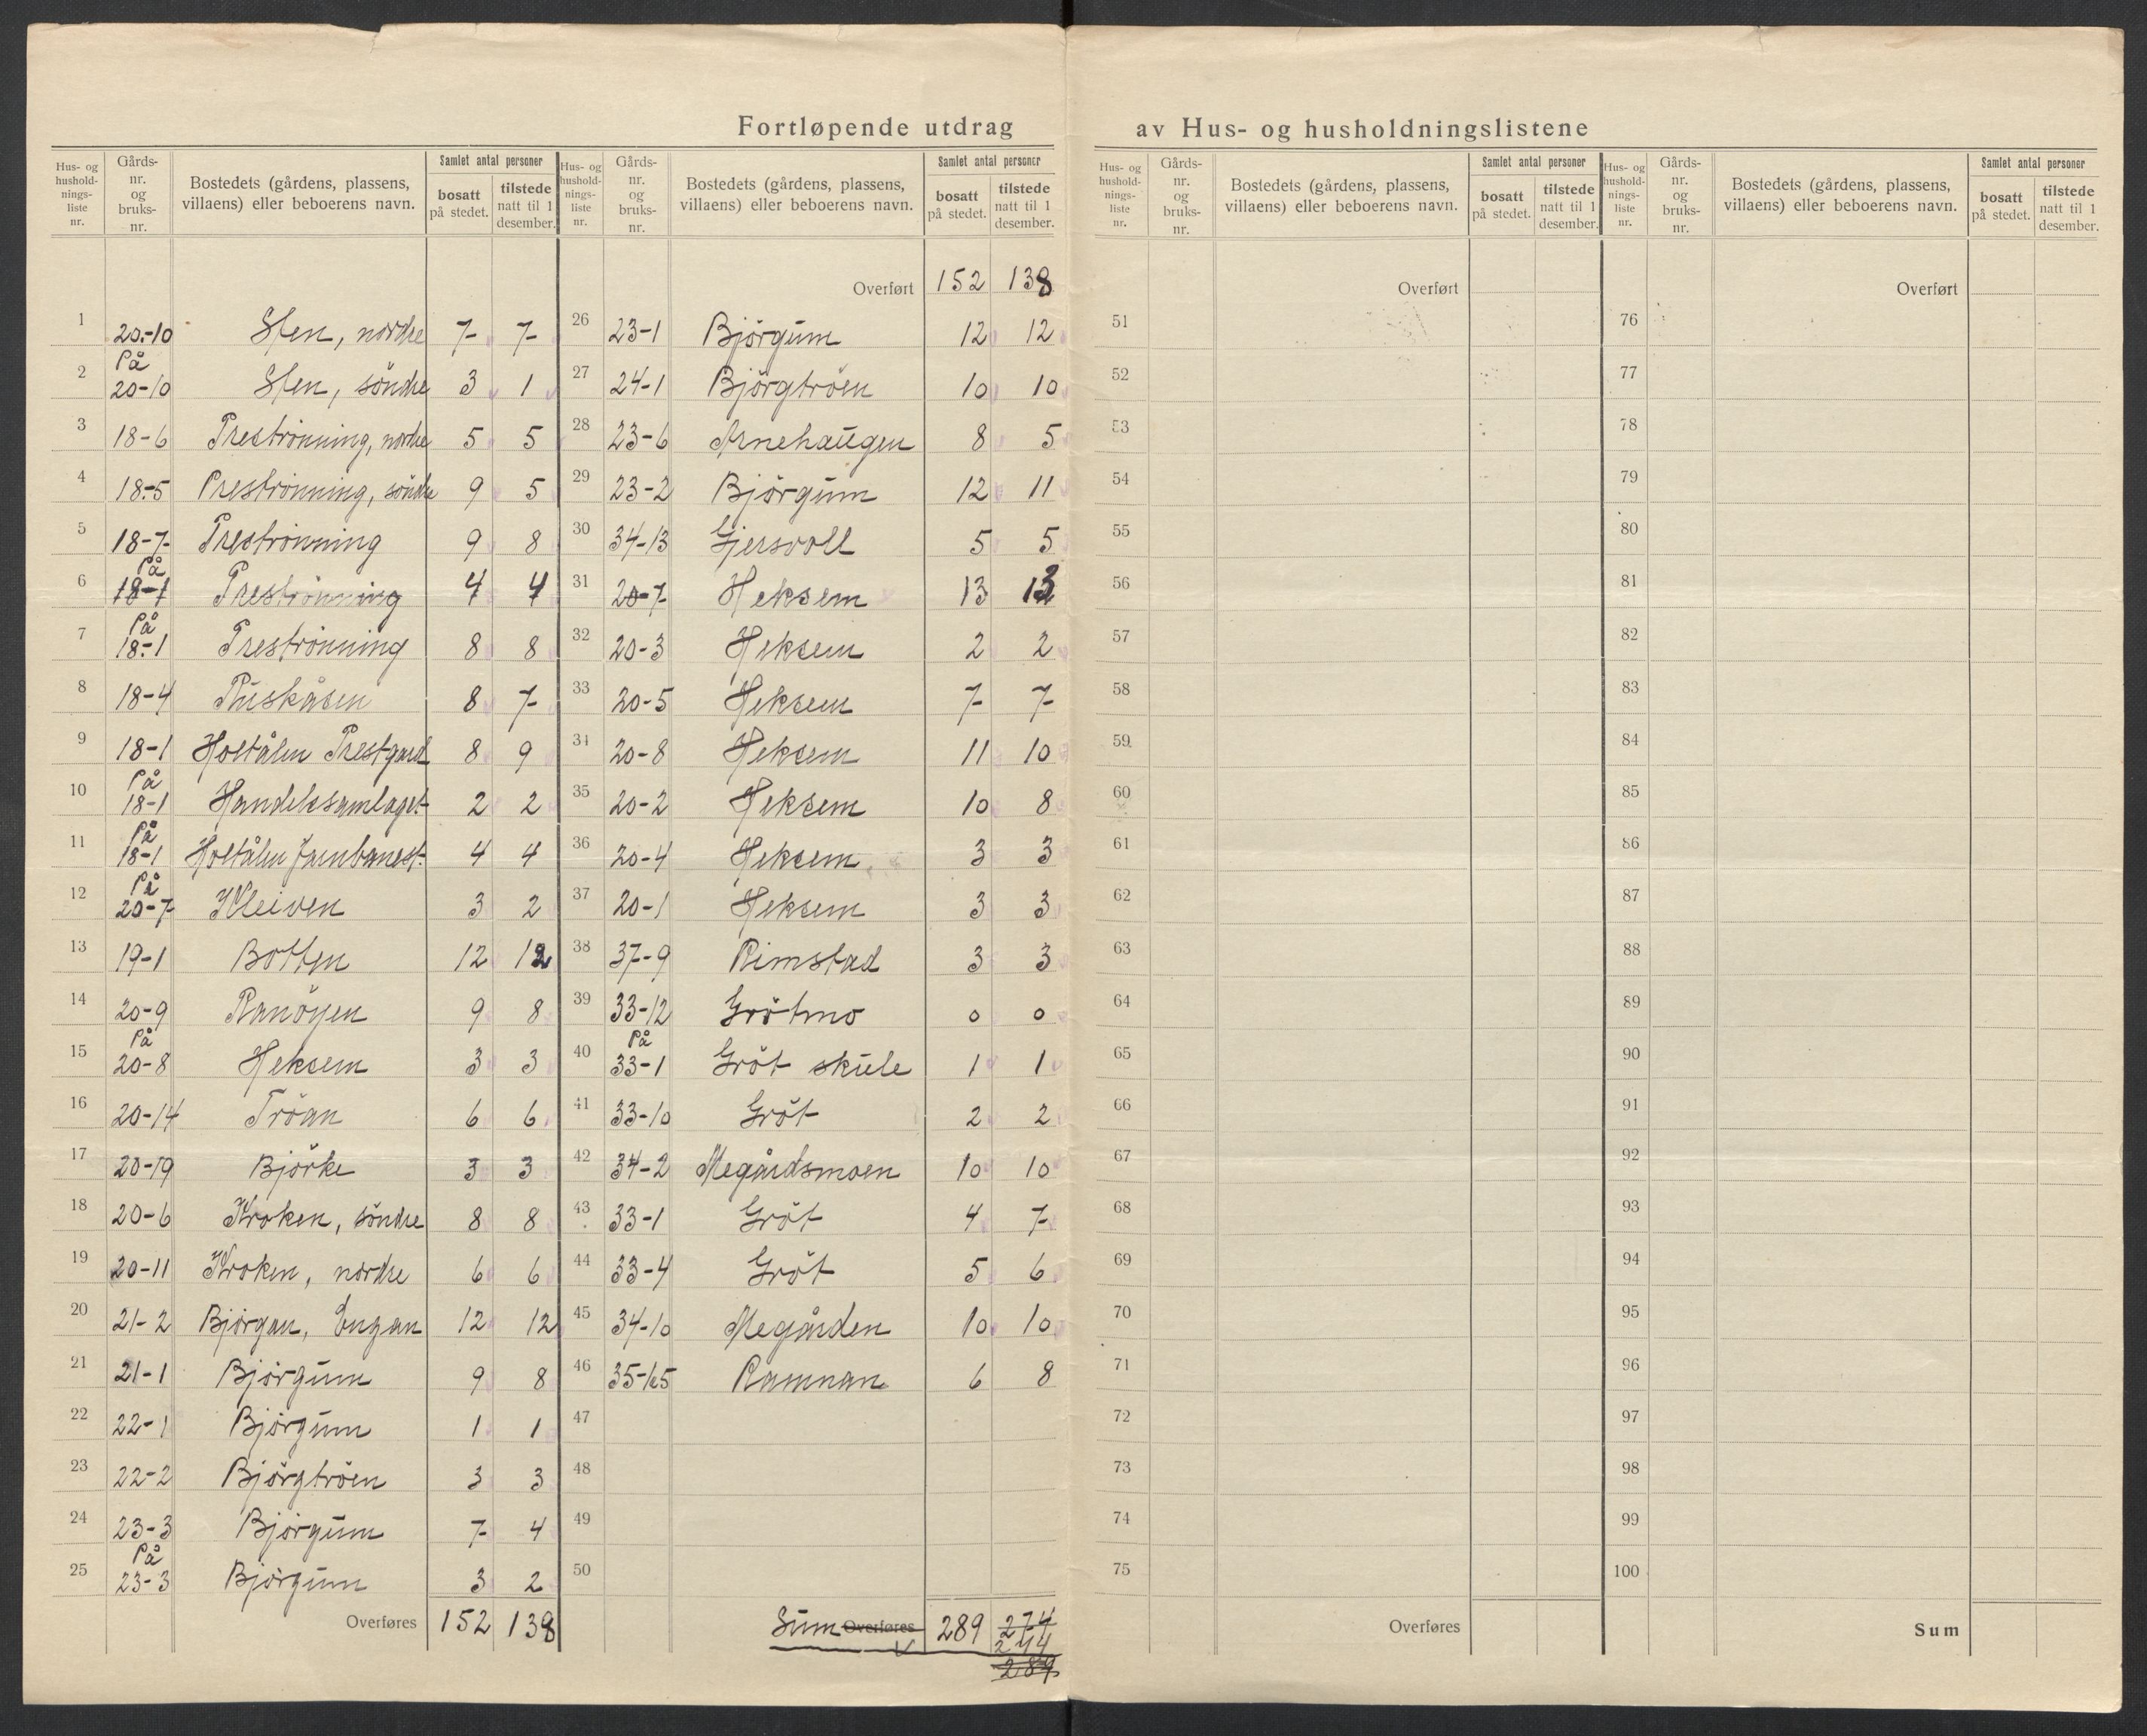 Fortløpende utdrag av Hus- og husholdningslistene
Hus- og hushold-nings-liste nr. | Gårds-nr. og bruks-nr. | Bostedets (gårdens, plassens, villaens) eller beboerens navn. | Samlet antal personer | bosatt på stedet. | tilstede natt til 1 desember.
1 20-10 Sten, nordre 7 7
2 På 20-10 Sten, søndre 3 1
3 18-6 Preströnning, nordre 5 5
4 18-5 Preströnning, söndre 9 5
5 18-7 Preströnning 9 8
6 På 18-1 Preströnning 4 4
7 På 18-1 Preströnning 8 8
8 18-4 8 7
9 18-1 Holtålen Prestgard 8 9
10 På 18-1 Handelssamlaget 2 2
11 På 18-1 Holtålen Jarnbanest. 4 4
12 På 20-7 Kleiven 3 2
13 19-1 Botten 12 12
14 20-9 Ranöyen 9 8
15 På 20-8 Heksem 3 3
16 20-14 Tröan 6 6
17 20-19 Björke 3 3
18 20-6 Kroken, söndre 8 8
19 20-11 Kroken, nordre 6 6
20 21-2 Björgan, Engan 12 12
21 21-1 Björgum 9 8
22 22-1 Björgum 1 1
23 22-2 Björgtröen 3 3
24 23-3 Björgum 7 4
25 På 23-3 Björgum 3 2
Overføres 152 138
Hus- og hushold-nings-liste nr. | Gårds-nr. og bruks-nr. | Bostedets (gårdens, plassens, villaens) eller beboerens navn. | Samlet antal personer | bosatt på stedet. | tilstede natt til 1 desember.
Overført 152 138
26 23-1 Björgum 12 12
27 24-1 Björgtröen 10 10
28 23-6 Arnehaugen 8 5
29 23-2 Björgum 12 11
30 34-13 Gjersvoll 5 5
31 20-7 Heksem 13 13
32 20-3 Heksem 2 2
33 20-5 Heksem 7 7
34 20-8 Heksem 11 10
35 20-2 Heksem 10 8
36 20-4 Heksem 3 3
37 20-1 Heksem 3 3
38 37-9 Rimstad 3 3
39 33-12 Grötmo 0 0
40 På 33-1 Gröt skule 1 1
41 33-10 Gröt 2 2
42 34-2 Megårdsmoen 10 10
43 33-1 Gröt 4 7
44 33-4 Gröt 5 6
45 34-10 Megården 10 10
46 Ramnan 6 8
47
48
49
50
Sum Overføres 289 274
244
289
Hus- og hushold-nings-liste nr. | Gårds-nr. og bruks-nr. | Bostedets (gårdens, plassens, villaens) eller beboerens navn. | Samlet antal personer | bosatt på stedet. | tilstede natt til 1 desember.
Overført
51
52
53
54
55
56
57
58
59
60
61
62
63
64
65
66
67
68
69
70
71
72
73
74
75
Overføres
Hus- og hushold-nings-liste nr. | Gårds-nr. og bruks-nr. | Bostedets (gårdens, plassens, villaens) eller beboerens navn. | Samlet antal personer | bosatt på stedet. | tilstede natt til 1 desember.
Overført
76
77
78
79
80
81
82
83
84
85
86
87
88
89
90
91
92
93
94
95
96
97
98
99
100
Sum